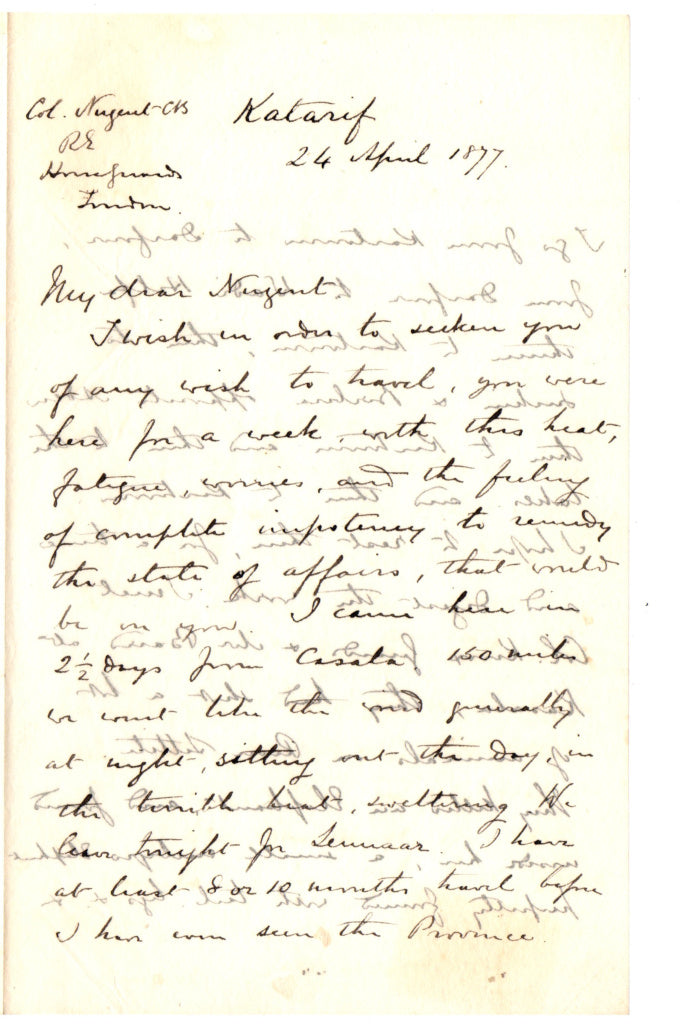 Col. Nugent CB
RE
Horseguards
London.
Katarif
24 April 1877.
My dear Nugent
I wish in order to sicken you
of any wish to travel, you were
here for a week, with this heat,
fatigue, worries, and the feeling
of complete impotency to remedy
the state of affairs, that would
be on you. I came here in
2 1/2 days from Casala 150 miles
we went like the wind generally
at night, sitting out the day, in
the terrible heat, sweltering. We
leave tonight for Sennaar. I have
at least 8 or 10 months travel before
I have even seen the Province.